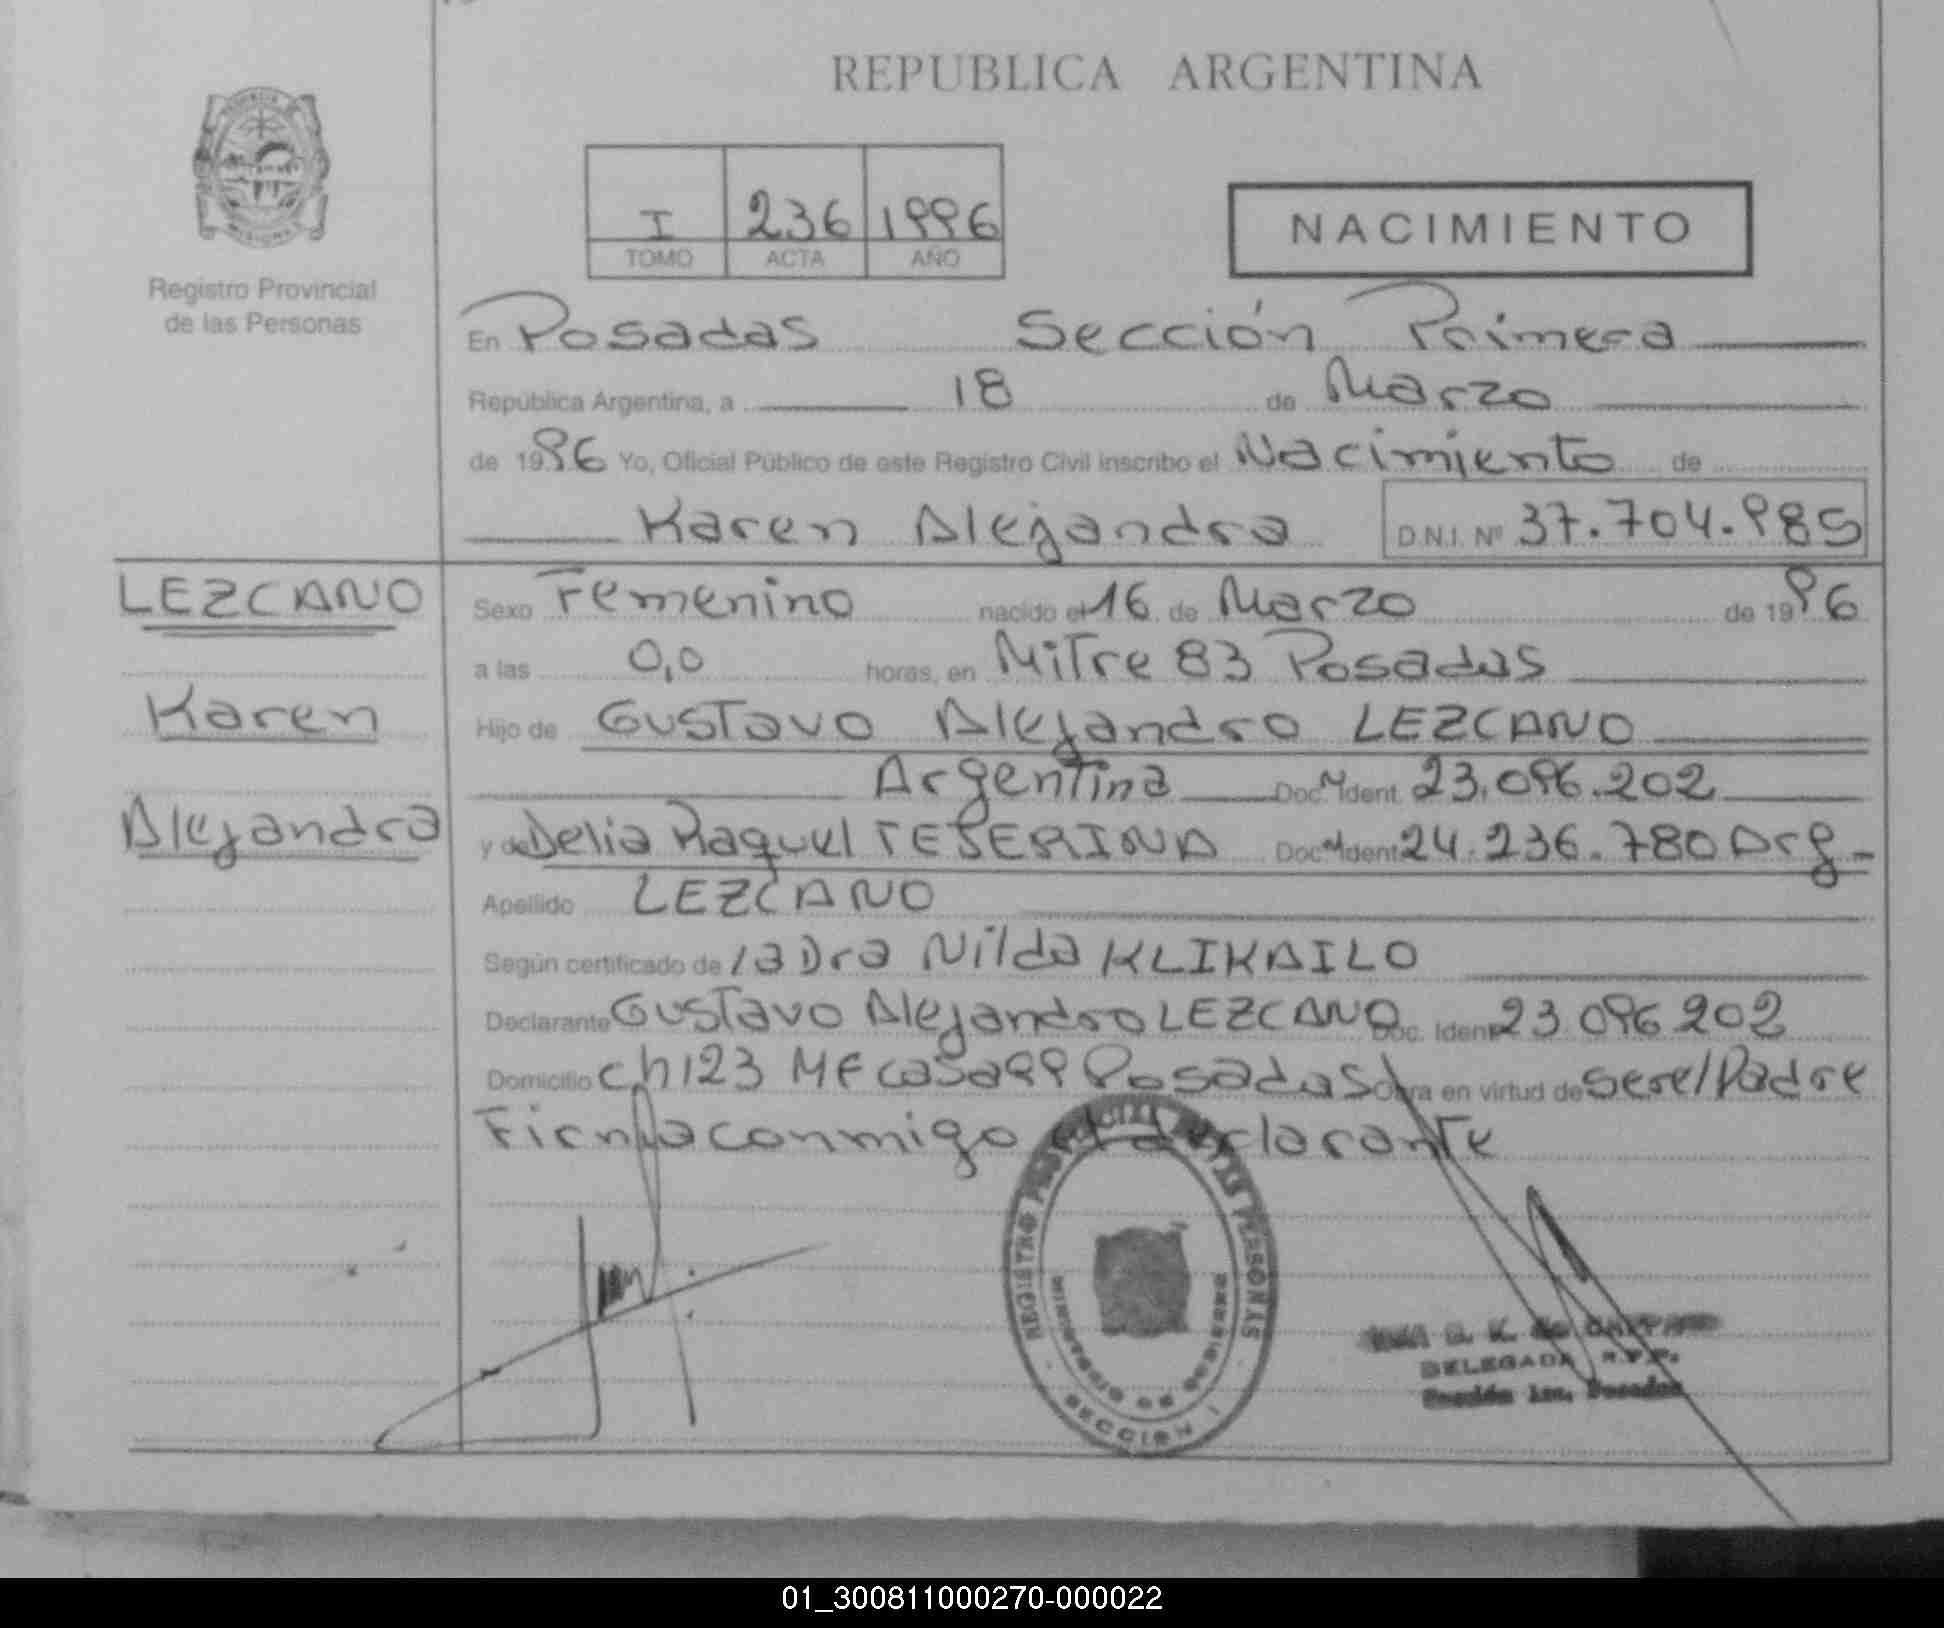 REPUBLICA ARGENTINA
I 236 1996
TOMO ACTA AÑO
NACIMIENTO
Registro Provincial
de las Personas
En Posadas Sección Primera
República Argentina, a 18 de Marzo
de 1996 Yo, Oficial Público de este Registro Civil inscribo el Nacimiento de
Karen Alejandra D.N.I. Nº 37.704.985
LEZCANO
Karen
Alejandra
Sexo Femenino nacido el 16 de Marzo de 1996
a las 0,0 horas, en Mitre 83 Posadas
Hijo de Gustavo Alejandro LEZCANO
Argentina Doc. Ident. 23.096.202
y de Delia Raquel TESERINA Doc. Ident. 24.236.780 Arg
Apellido LEZCANO
Según certificado de la Dra Nilda KLIKAILO
Declarante Gustavo Alejandro LEZCANO Doc. Ident. 23 096 202
Domicilio ch 123 Posadas Obra en virtud de ser el Padre
Firma conmigo el declarante
REGISTRO DE LAS PERSONAS
MINISTERIO DE GOBIERNO
SECCION I
DELEGADA R.P.P.
Sección 1ra. Posadas
01_300811000270-000022